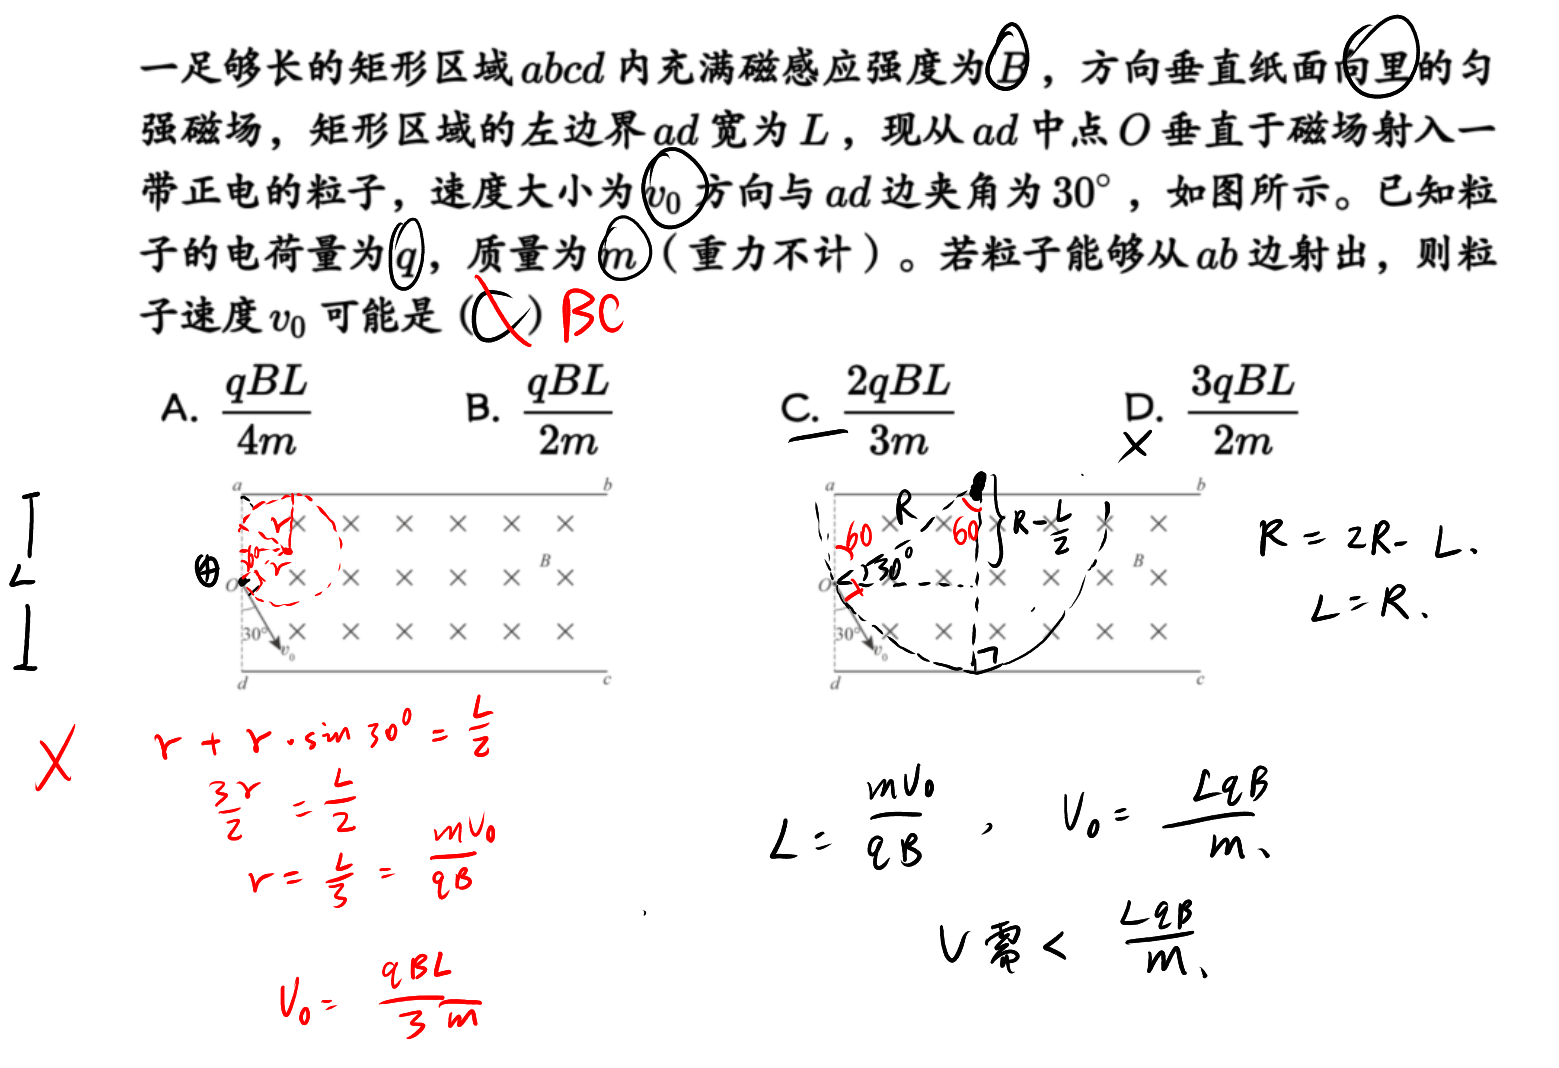 一足够长的矩形区域abcd内充满磁感应强度为B，方向垂直纸面向里的匀
强磁场，矩形区域的左边界ad宽为L，现从ad中点O垂直于磁场射入一
带正电的粒子，速度大小为v₀方向与ad边夹角为30°，如图所示。已知粒
子的电荷量为q，质量为m（重力不计）。若粒子能够从ab边射出，则粒
子速度v₀可能是（C）BC
A. qBL/4m B. qBL/2m C. 2qBL/3m D. 3qBL/2m
×
a b
r
60
r
B
⊕ O
L
30°
v₀
d c
a b
R
60
60
R-L/2
30°
B
O
30°
v₀
d c
R = 2R- L.
L = R.
× r + r·sin30° = L/2
3r/2 = L/2
r = L/3 = mv₀/qB
v₀ = qBL/3m
L = mv₀/qB , v₀ = LqB/m、
V需 < LqB/m、